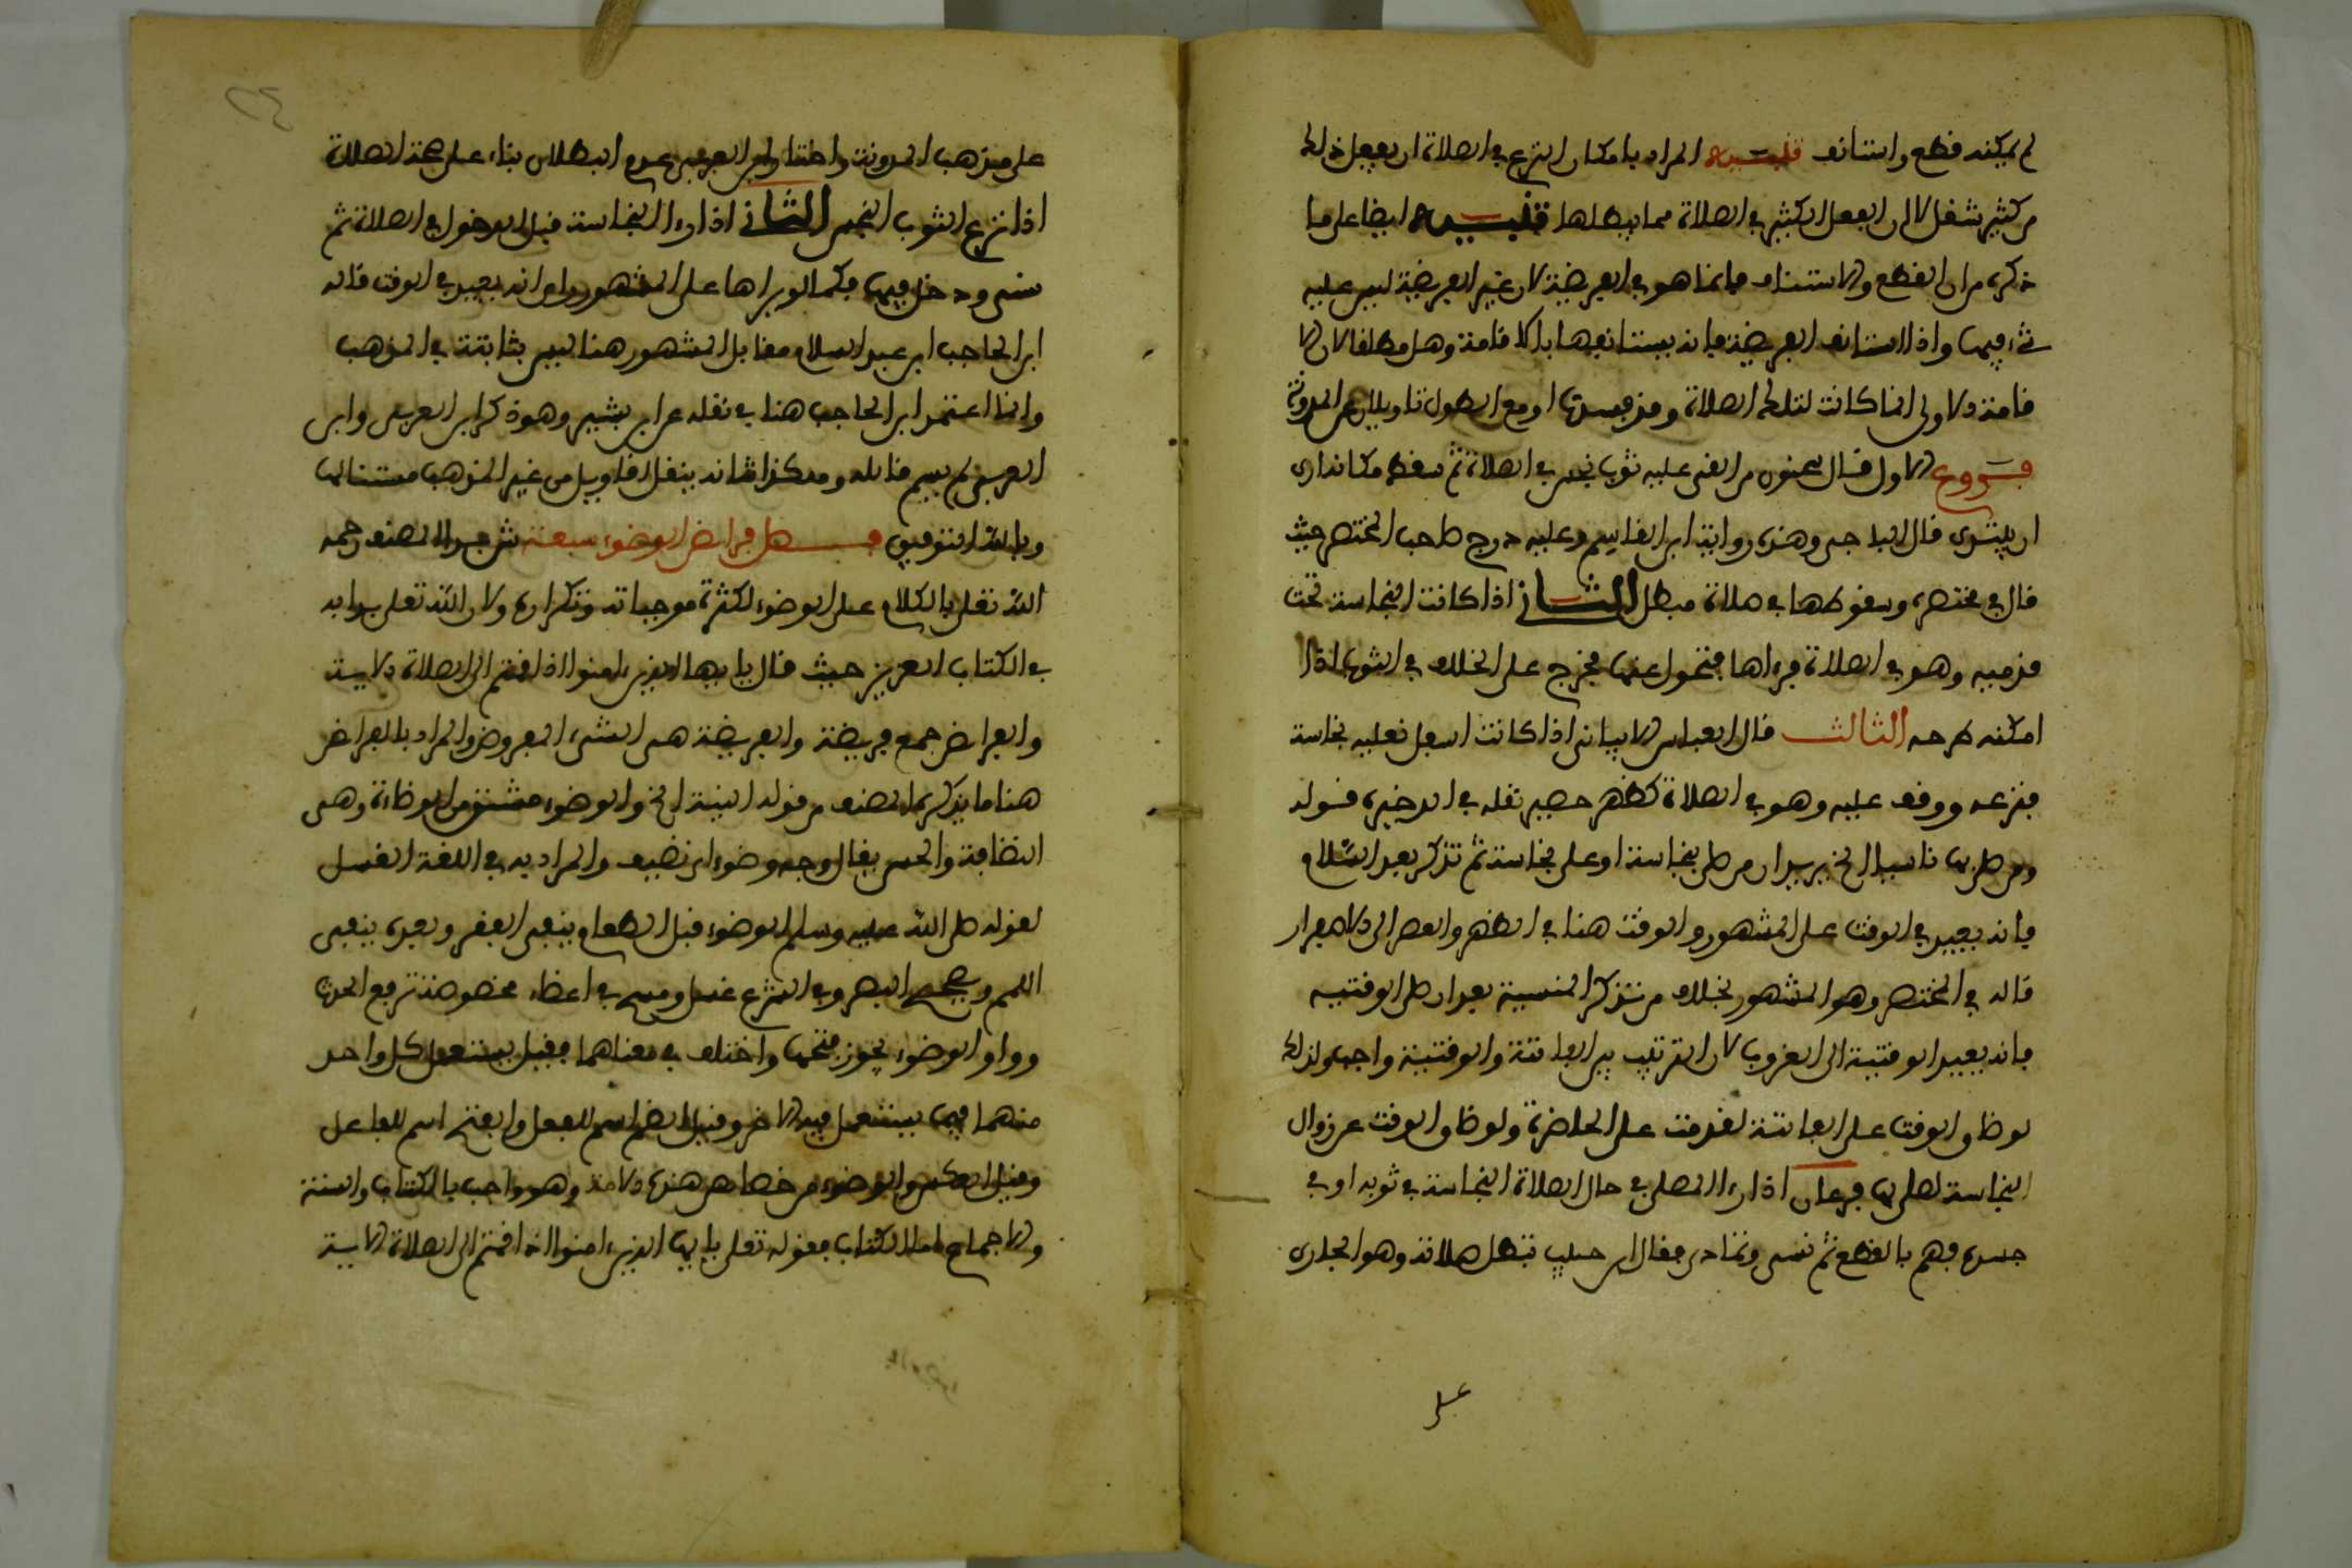 لم يمكنه قطع واستانف تنبيه المراد بامكان النزع في الصلاة ان يفعل ذلك
من كثير شغل لان الفعل الكثير في الصلاة مما يبطلها تنبيه ايضا على ما
ذكره من ان القطع والاستيناف فانما هو في الفريضة لان غير الفريضة ليس عليه
شيء فيها واذا استانف الفريضة فانه يستانفها بالاقامة وهل مطلقا لان الا
قامة الاولى انما كانت لتلك الصلاة وقد فسدت او مع الطول تاويلان على المدونة
فروع الاول قال سحنون من القي عليه ثوب نجس في الصلاة ثم سقط مكانه ارى
ان يبتدي قال الباجي وهذه رواية ابن القاسم وعليه درج صاحب المختصر حيث
قال في مختصره وسقوطها في صلاة مبطل الثاني اذا كانت النجاسة تحت
قدميه وهو في الصلاة فرءاها فتحول عنها فيخرج على الخلاف في الثوب اذا
امكنه طرحه الثالث قال ابو العباس الابياني اذا كانت اسفل نعليه نجاسة
فنزعه ووقف عليه وهو في الصلاة كظهر حصير نقله في الذخيرة قوله
ومن صلى بها ناسيا الخ يريد ان من صلى بنجاسة او على نجاسة ثم تذكر بعد السلام
فانه يعيد في الوقت على المشهور والوقت هنا في الظهر والعصر الى الاصفرار
قاله في المختصر وهو المشهور بخلاف من تذكر المنسية بعد ان صلى الوقتيه
فانه يعيد الوقتية الى الغروب لان الترتيب بين الفائتة والوقتية واجب ولذلك
لو ضاق الوقت على الفائتة لقدمت على الحاضرة ولو ضاق الوقت عن زوال
النجاسة لصلى بها فرعان اذا رءا المصلي في حال الصلاة النجاسة في ثوبه او في
جسده فهم بالقطع ثم نسي وتمادى فقال ابن حبيب تبطل صلاته وهو الجاري
على
على مذهب المدونة واختار ابن العربي عدم البطلان بناء على صحة الصلاة
اذا نزع الثوب النجس الثاني اذا رءا النجاسة قبل الدخول في الصلاة ثم
نسي ودخل فيها فكما لو لم يراها على المشهور وان انه يعيد في الوقت قاله
ابن الحاجب ابن عبد السلام مقابل المشهور هنا ليس بثابتة في المذهب
وانما اعتمد ابن الحاجب هنا في نقله عن ابن بشير وهو ذكر ابن العربي وابن
العربي لم يسم قائله وهكذا شانه ينقل اقاويل من غير المذهب مستنا لها
وبالله التوفيق فصل فرائض الوضوء سبعة شرع المصنف رحمه
الله تعلى بالكلام على الوضوء لكثرة موجباته وتكراره ولان الله تعلى بدا به
في الكتاب العزيز حيث قال يا ايها الذين ءامنوا اذا قمتم الى الصلاة الاية
والفرائض جمع فريضة والفريضة هي الشيء المفروض والمراد بالفرائض
هنا ما يذكره المصنف من قوله النية الخ والوضوء مشتق من الوضاءة وهي
النظافة والحسن يقال وجه وضوء اي نضيف والمراد به في اللغة الغسل
لقوله صلى الله عليه وسلم الوضوء قبل الطعام ينفي الفقر وبعده ينفي
اللمم ويصحح البصر وفي الشرع غسل ومسح في اعضاء مخصوصة ترفع الحدث
وواو الوضوء يجوز فتحها واختلف في معناهما فقيل يستعمل كل واحد
منهما فيما يستعمل فيه الاخر وقيل الضم اسم للفعل والفتح اسم للفاعل
وقيل العكس والوضوء من خصائص هذه الامة وهو واجب بالكتاب والسنة
والاجماع اما الكتاب فقوله تعلى يا ايها الذين ءامنوا اذا قمتم الى الصلاة الاية